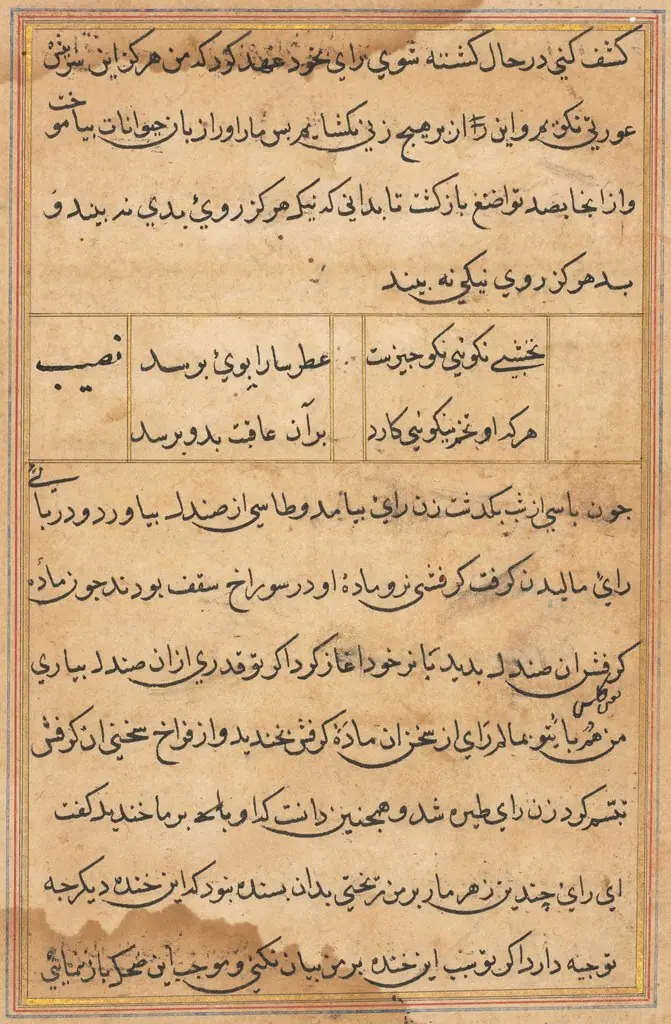 کشف کنی در حال کشته شوی رای بخود عهد کرد که من هرکز این سر پیش
عورتی نکویم و این را از بر هیچ زنی نکشایم بس مار اورا زبان حیوانات بیاموخت
و از انجا بصد تواضع بازکشت تا بدانی که نیک هرکز روی بدی نه بیند و
بد هرکز روی نیکی نه بیند
نخشبی نکوئی نکو جیزیست عطر سارا بوی برسد نصیب
هرکه او تخم نیکوئی کارد بر آن عاقبت بدو برسد
جون باسی از شب بکذشت زن رای بیامد و طاسی از صندل بیاورد و در پای
رای مالیدن کرفت کرفشی نر و مادهٔ او در سوراخ سقف بودند جون ماده
کرفش ان صندل بدید با نر خود اغاز کرد اکر تو قدری ازان صندل بیاری
من هم بپای تو بمالم رای از سخن ان مادهٔ کرفش بخندید و از فراخ سخنی ان کرفش
تبسم کرد زن رای طیره شد و همجنین دانست که او بر ما خندید کفت
ای رای چندین زهر مار بر من ریختی بدان بسنده نبود که این خنده دیکر جه
توجیه دارد اکر تو سبب این خنده بر من بیان نکنی و موجب این ضحک باز ننمایی